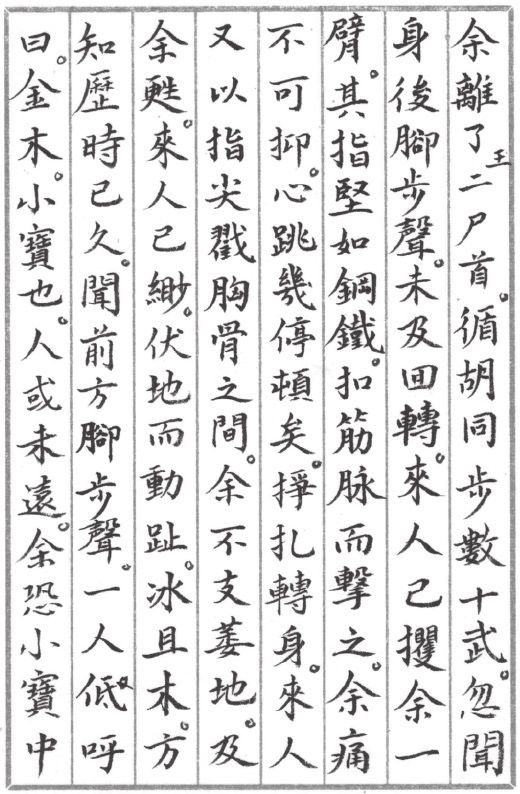 余離了王二尸首。循胡同步數十武。忽聞
身後腳步聲。未及回轉。來人已攫余一
臂。其指堅如鋼鐵。扣筋脉而擊之。余痛
不可抑。心跳幾停頓矣。掙扎轉身。來人
又以指尖戳胸骨之間。余不支萎地。及
余甦。來人已緲。伏地而動趾。冰且木。方
知歷時已久。聞前方腳步聲。一人低呼
曰。金木。小寶也。人或未遠。余恐小寶中